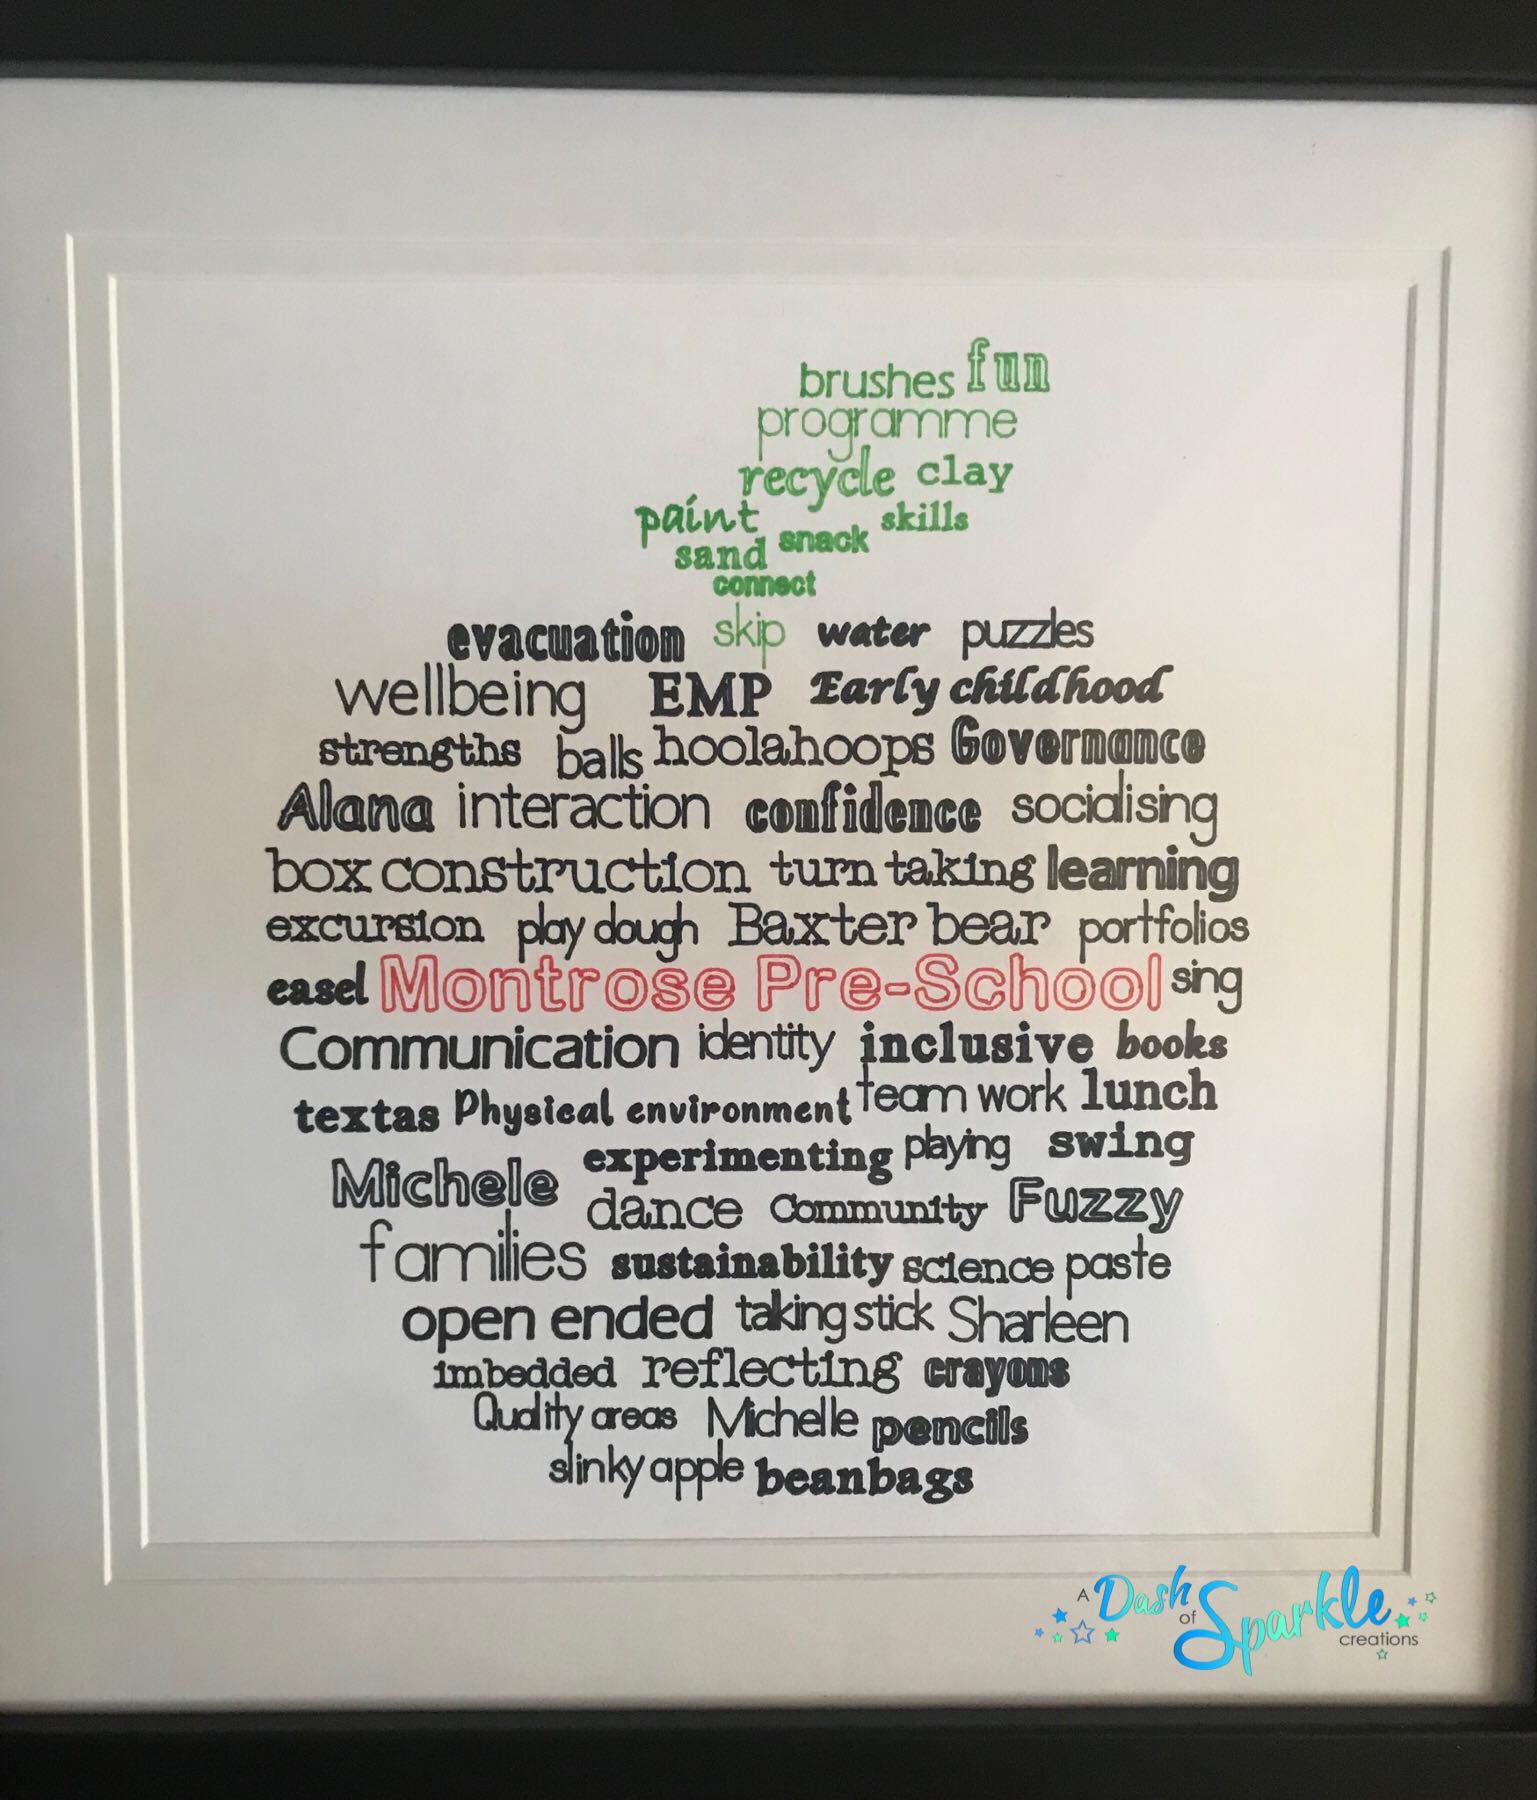 brushes fun
programme
recycle clay
paint snack skills
sand
connect
evacuation skip water puzzles
wellbeing EMP Early childhood
strengths balls hoolahoops Governance
Alana interaction confidence socialising
box construction turn taking learning
excursion play dough Baxter bear portfolios
easel Montrose Pre-School sing
Communication identity inclusive books
textas Physical environment team work lunch
experimenting playing swing
Michele dance Community Fuzzy
families sustainability science paste
open ended taking stick Sharleen
imbedded reflecting crayons
Quality areas Michelle pencils
slinky apple beanbags
A Dash of Sparkle creations